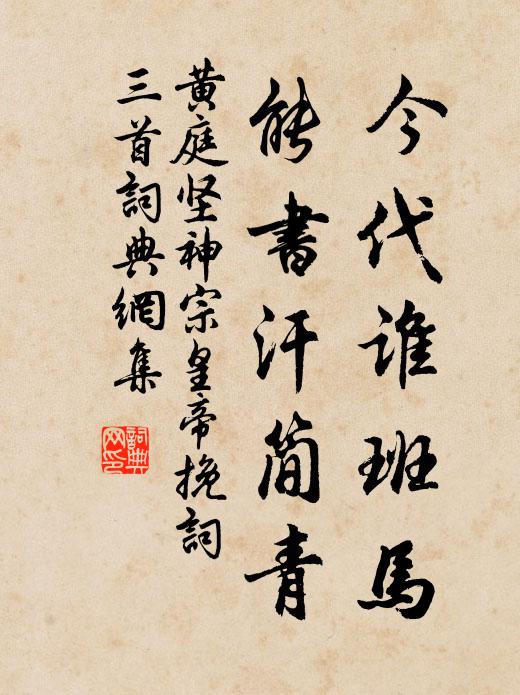 今代誰班馬
能書汗简青
黄庭坚神宗皇帝挽詞
三首詞典網集
詞典
网印